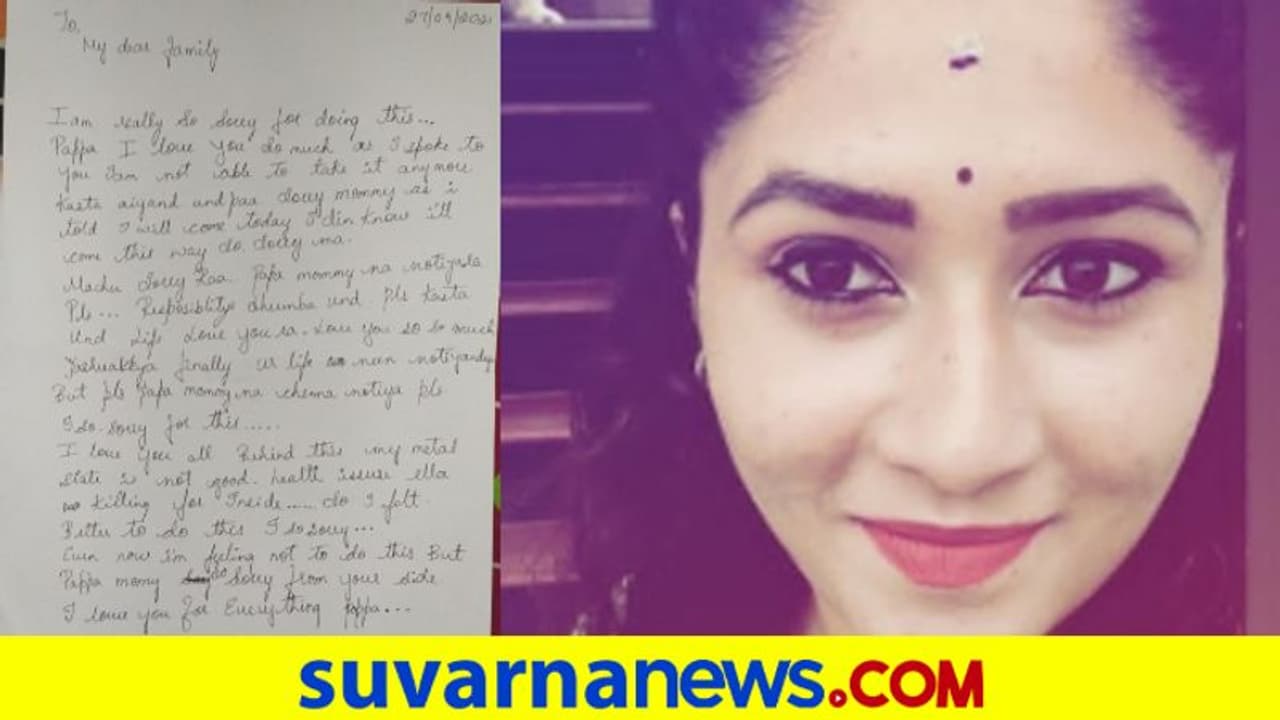 To,
27/09/2021
My dear Family
I am really so sorry for doing this...
Pappa I love you so much as I spoke to
you Iam not able to take it anymore
Kasta aiyand undpaa sorry mommy as i
told I will come today I din know i'll
come this way so sorry ma.
Machu sorry Raa. Papa mommy na notiyada
Pls... Resposiblitys dhumba und pls Kasta
Und life Love you ra. Love you so so much
finally ur life neen notiyandy
But pls Papa mommy na chenna notiya pls
I so sorry for this.....
I love you all Behind this my metal
state is not good. health issuse ella
Killing for Inside..... so I felt
Better to do this I so sorry...
Even now i'm feeling not to do this But
Pappa momy so sorry from your side
I love you for Everything pappa...
suvarnanews.COM